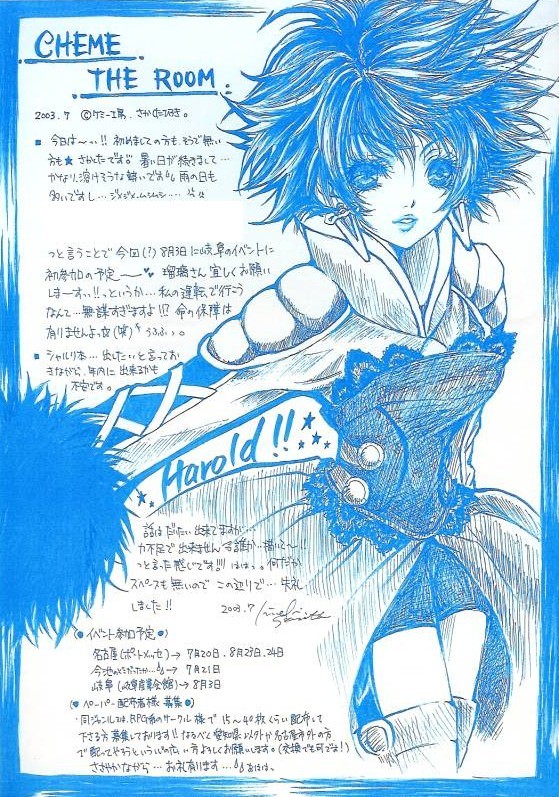 CHEME
THE ROOM.
2003.7 ©ケミー工房.さかした
■ 今日は〜い!! 初めましての方も、そうで無い
方も★さかたです 暑い日が続きまして…
かなり、溶けそうな勢いです 雨の日も
多いですし…ジメジメ、ムシムシ…
っと言うことで今回(?) 8月3日に岐阜のイベントに
初参加の予定〜 瑠璃さん宜しくお願い
しまーすぃ!!。っというか…私の運転で行こう
なんて…無謀すぎますよ!!? 命の保障は
有りませんよ。(笑) うふふっ。
■ シャルリ本…出したいと言ってお
きながら、年内に出来るかも
不安です。
Harold!!
話はだいたい出来てますが…
力不足で出来ません 誰か〜描いて〜!!
っと言った感じです!!! ははっ。何だか
スペースも無いので この辺りで… 失礼
しました!! 2003.7
(●イベント参加予定●)
名古屋(ポートメッセ)→ 7月20日.8月23日.24日
今池 → 7月21日
岐阜(岐阜産業会館)→ 8月3日
(●ペーパー配布者様 募集●)
・同ジャンル又は、RPG系のサークル様で 15〜40枚くらい配布して
下さる方募集しております!! なるべく愛知県以外か名古屋市外の方
で配ってやろうという心の広い方よろしくお願いします。(交換でも可です!)
ささやかながら… お礼有ります…